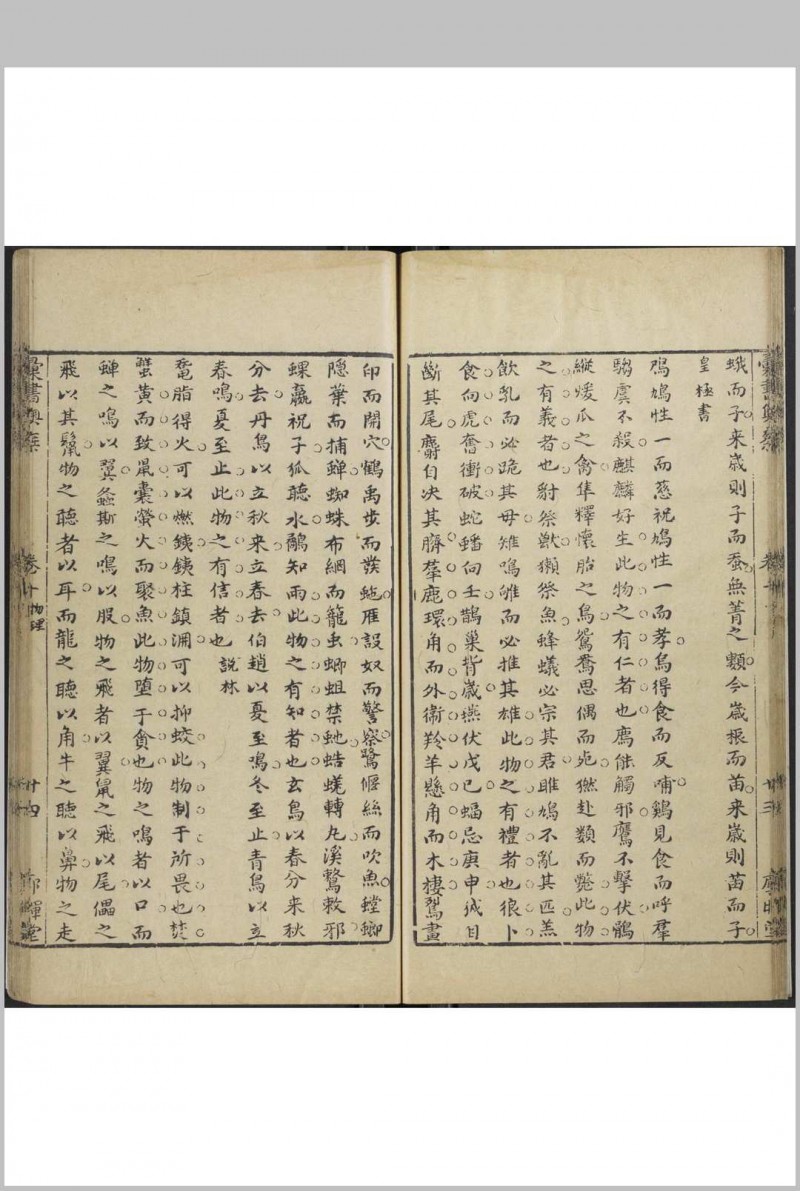 蛾而子来歲則子而蚕無菁之類今歲根而苗来歲則苗而子
皇極書
鳲鳩性一而慈祝鳩性一而孝烏得食而反哺鷄見食而呼羣
騶虞不殺麒麟好生此物之有仁者也廌能觸邪鷹不擊伏鶻
縱煖爪之禽隼釋懷胎之鳥鴛鴦思偶而死猓赴類而斃此物
之有義者也豺祭獸獺祭魚蜂蟻必宗其君雎鳩不亂其匹羔
飲乳而必跪其母雉鳴雊而必推其雄此物之有禮者也狼卜
食向虎奮衝破蛇蟠向壬鵲巢背歲燕伏戊己蝠忌庚申狨自
斷其尾麝自决其臍羣鹿環角而外衞羚羊懸角而木棲鴷畫
印而開穴鶴禹步而轉虵雁設奴而警察鷺偃絲而吹魚螳螂
隱葉而捕蟬蜘蛛布網而籠虫蝍蛆禁虵蜣蜋轉丸溪鶩敕邪
蜾蠃祝子狐聽水鸐知雨此物之有知者也玄鳥以春分来秋
分去丹鳥以立秋来立春去伯趙以夏至鳴冬至止青鳥以立
春鳴夏至止此物之有信者也 說林
鼋脂得火可以燃鐵鐵柱鎮淵可以抑蛟此物制于所畏也焚
蟹黄而致鼠囊螢火而聚魚此物墮于貪也物之鳴者以口而
蟬之鳴以翼螽斯之鳴以股物之飛者以翼鼠之飛以尾儡之
飛以其鬛物之聽者以耳而龍之聽以角牛之聽以鼻物之走
彙書興桼
卷廿 物理
廿四